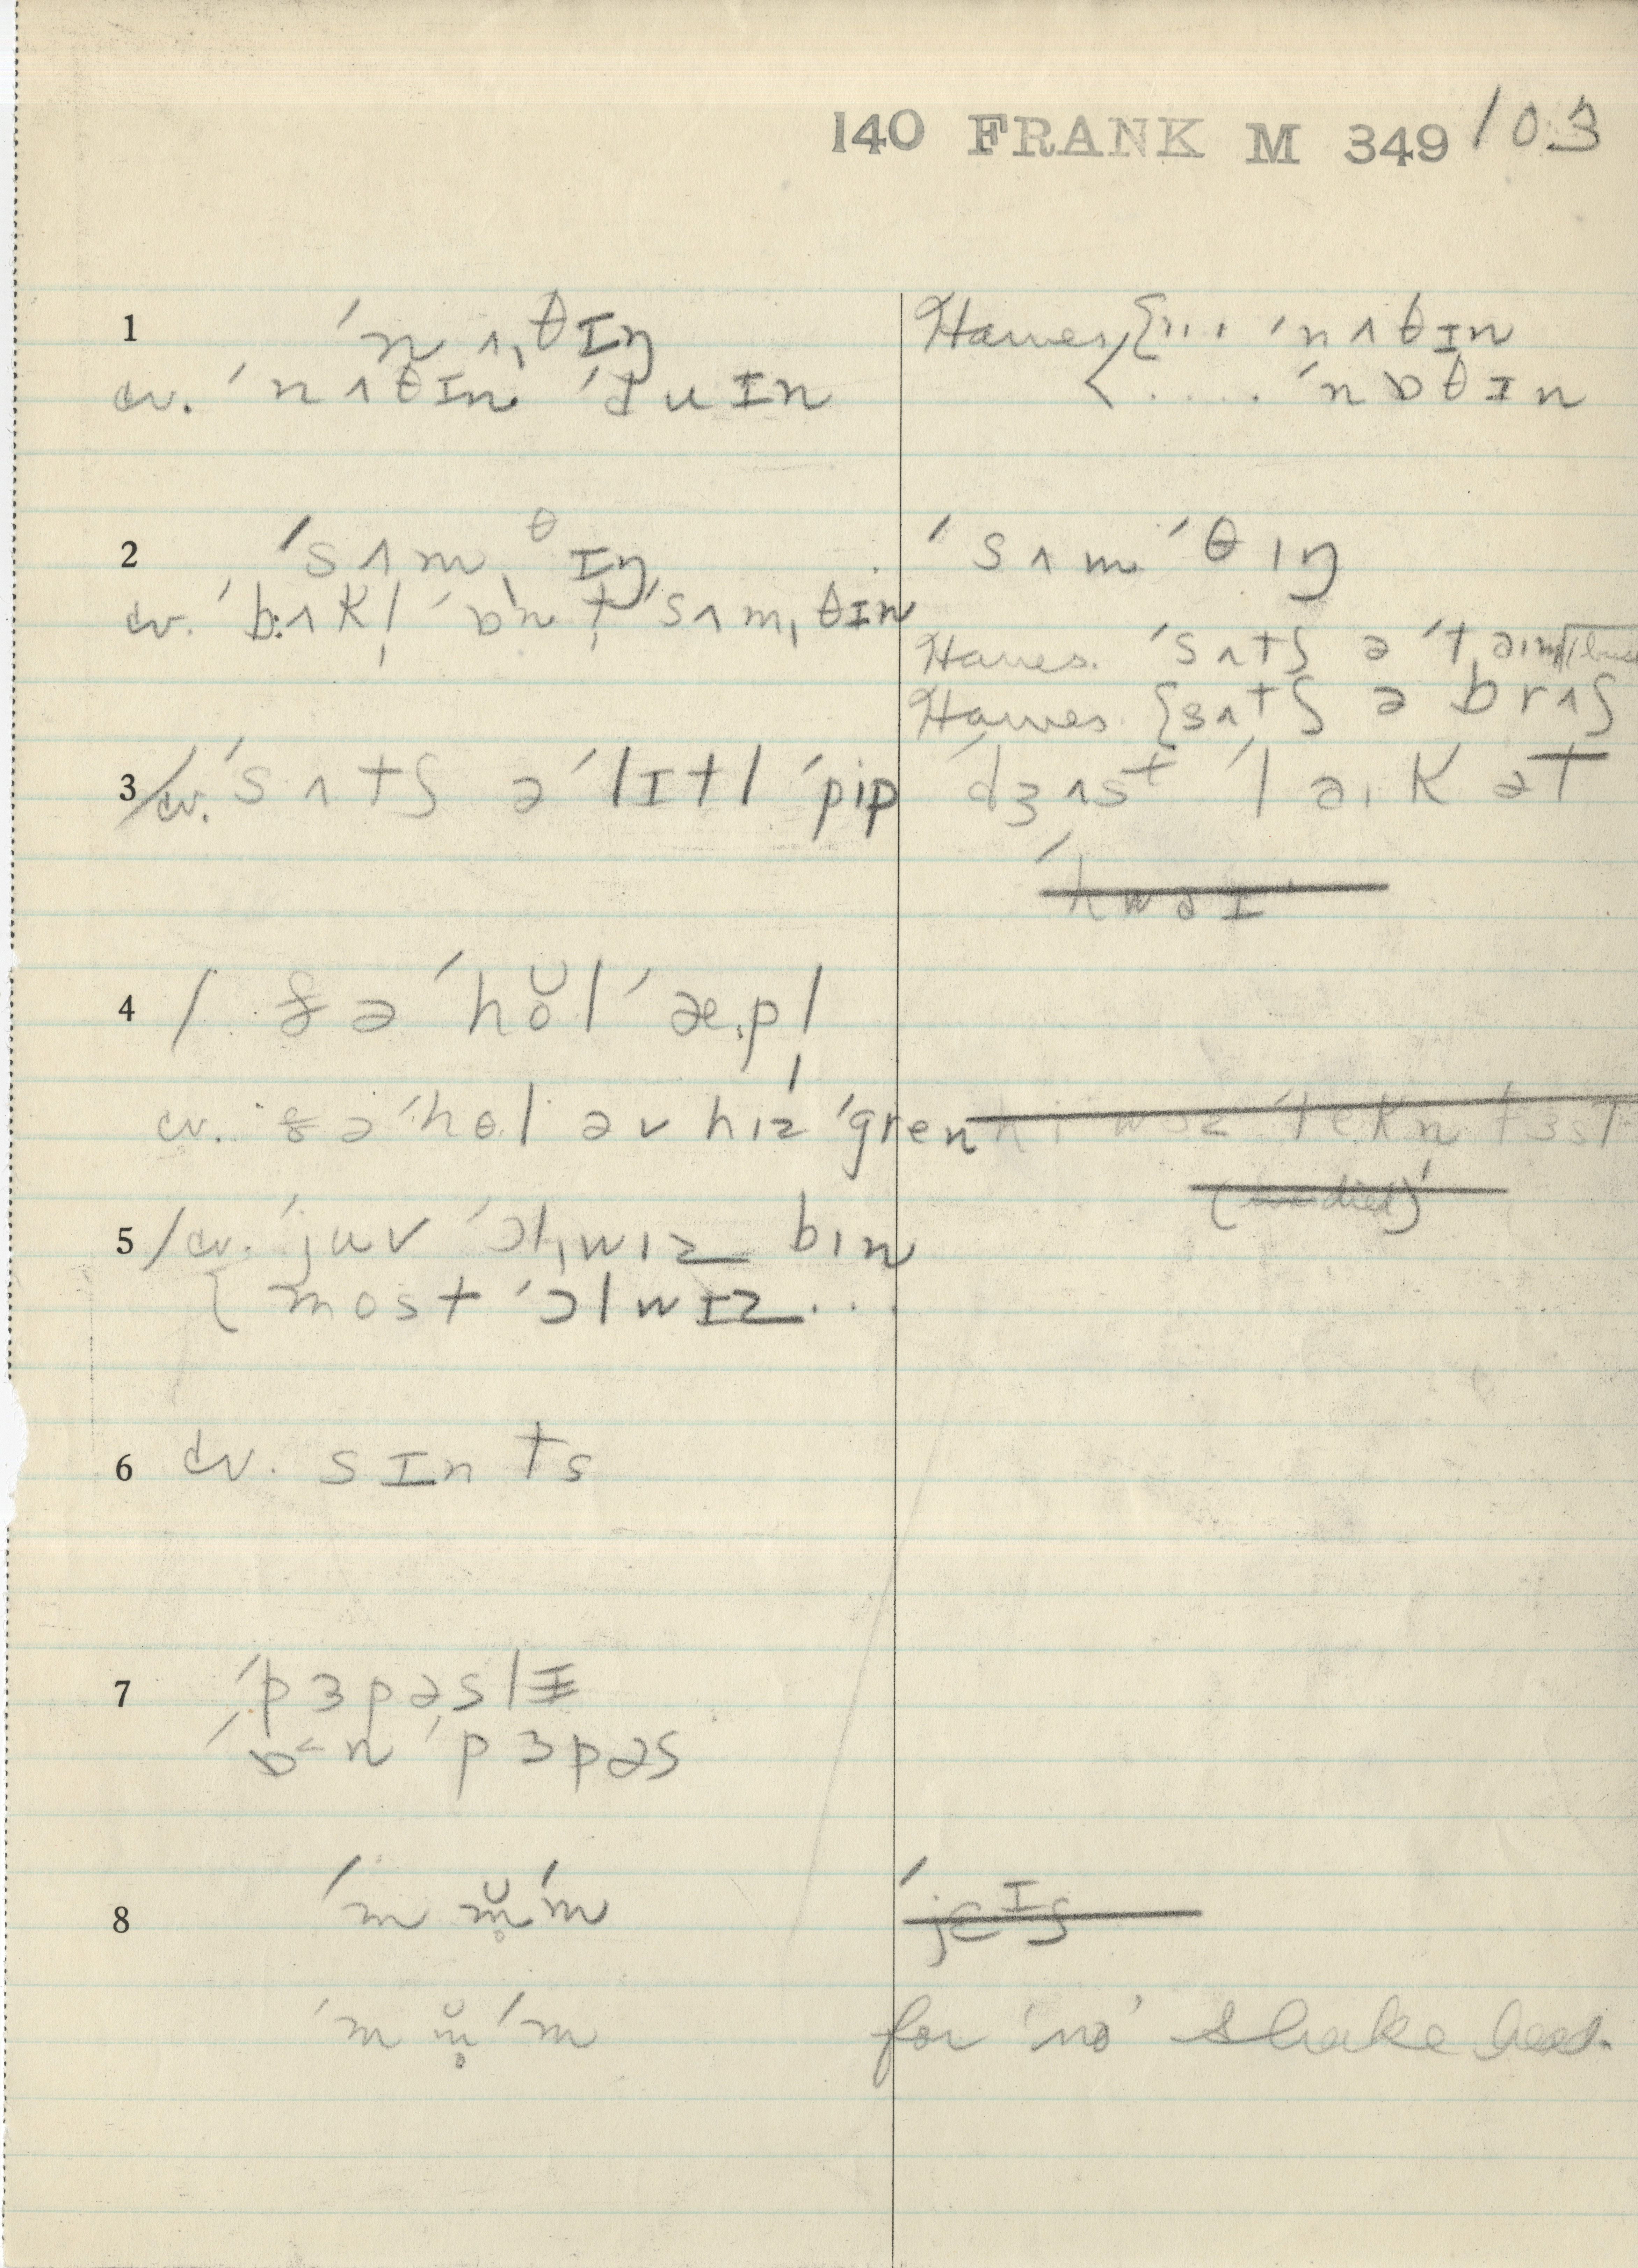 140 FRANK M 349 /03
1 ˈnʌˌθɪŋ
cv. ˈnʌθɪn ˈduɪn
Hawes {... ˈnʌθɪn
< .... ˈnɒθɪn
2 ˈsʌmˌθɪŋ
cv. ˈbʌk! ˈɒn t ˈsʌmˌθɪn
ˈsʌmˈθɪŋ
Hawes. ˈsʌtʃ ə ˈtaɪm
Hawes. {sʌtʃ ə brʌʃ
3 / cv. ˈsʌtʃ ə ˈlɪtl ˈpip
ˈdʒʌst ˈlaɪk ət
ˈhwəɪ
4 / ðə ˈhŏl ˈæpl
cv. ðə ˈhɵl əv hɪz ˈgren
(died)
5 / cv. ˈjuv ˈɔlˌwɪz bɪn
{ most ˈɔlwɪz...
6 cv. sɪnts
7 ˈpɜpəslɪ
ˈɒ˂n ˈpɜpəs
8 ˈm m̥̆ ˈm
ˈjɛɪs
ˈm m̥̆ ˈm
for 'no' shake head.